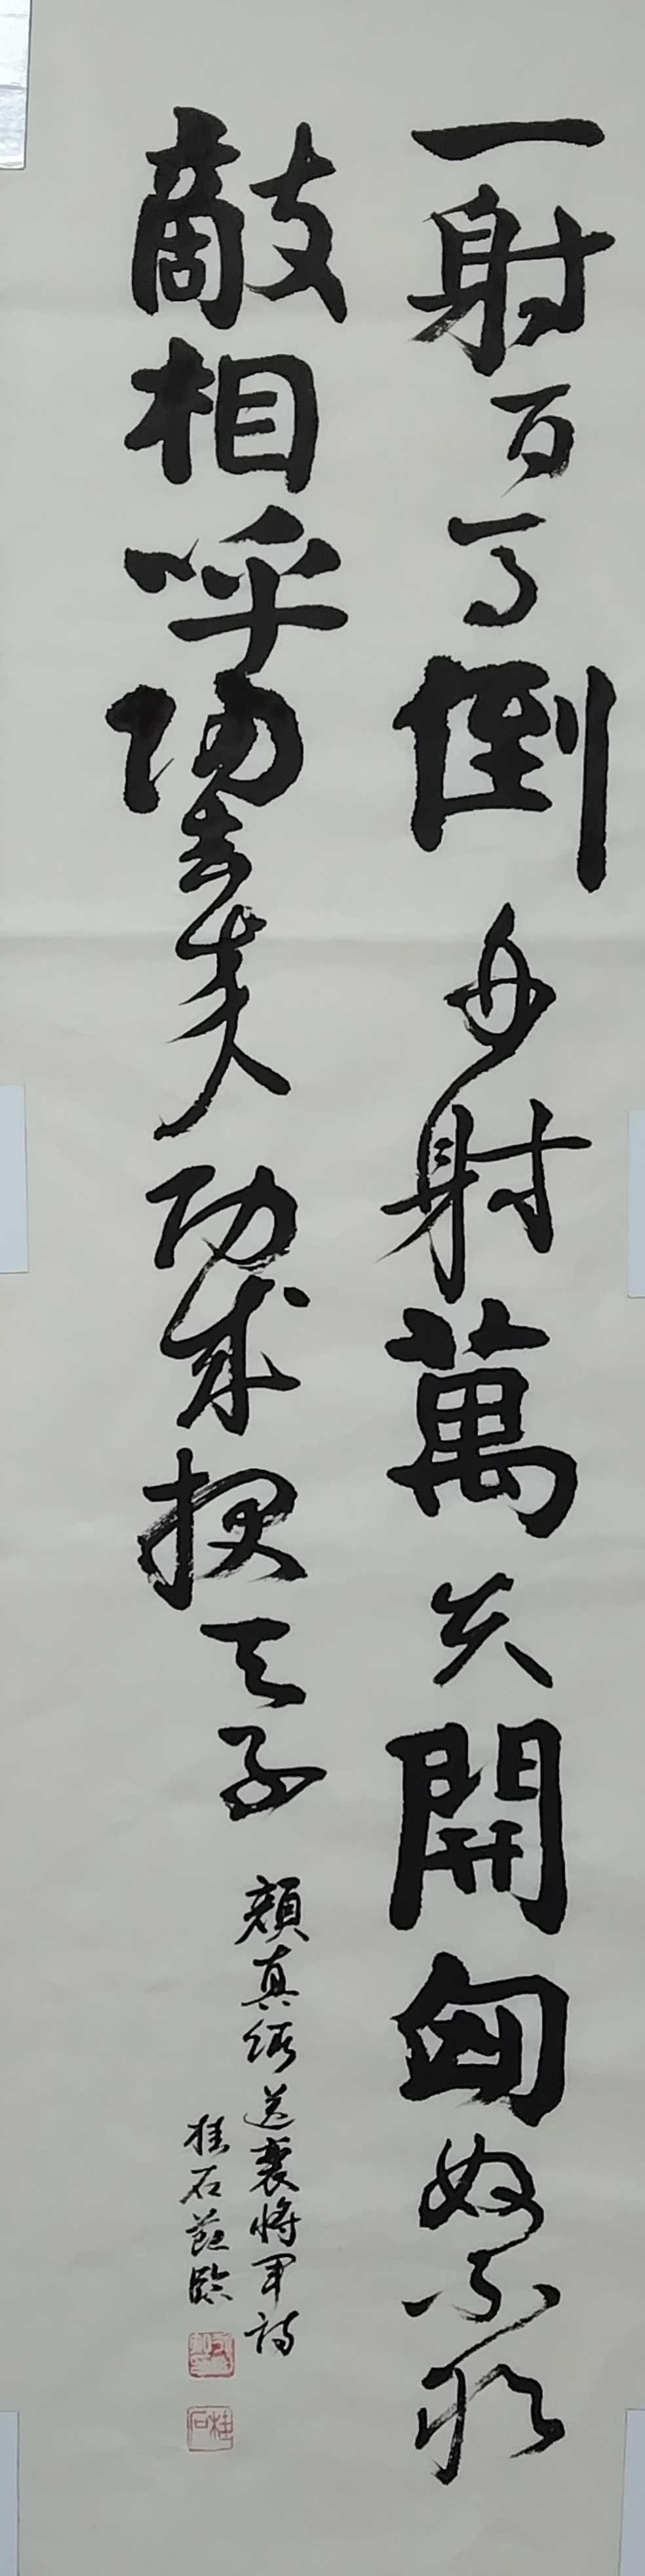 一射百馬倒再射萬夫開匈奴不敢
敵相呼歸去來功成報天子
顏真卿送裴將軍詩
桂石臨
桂石